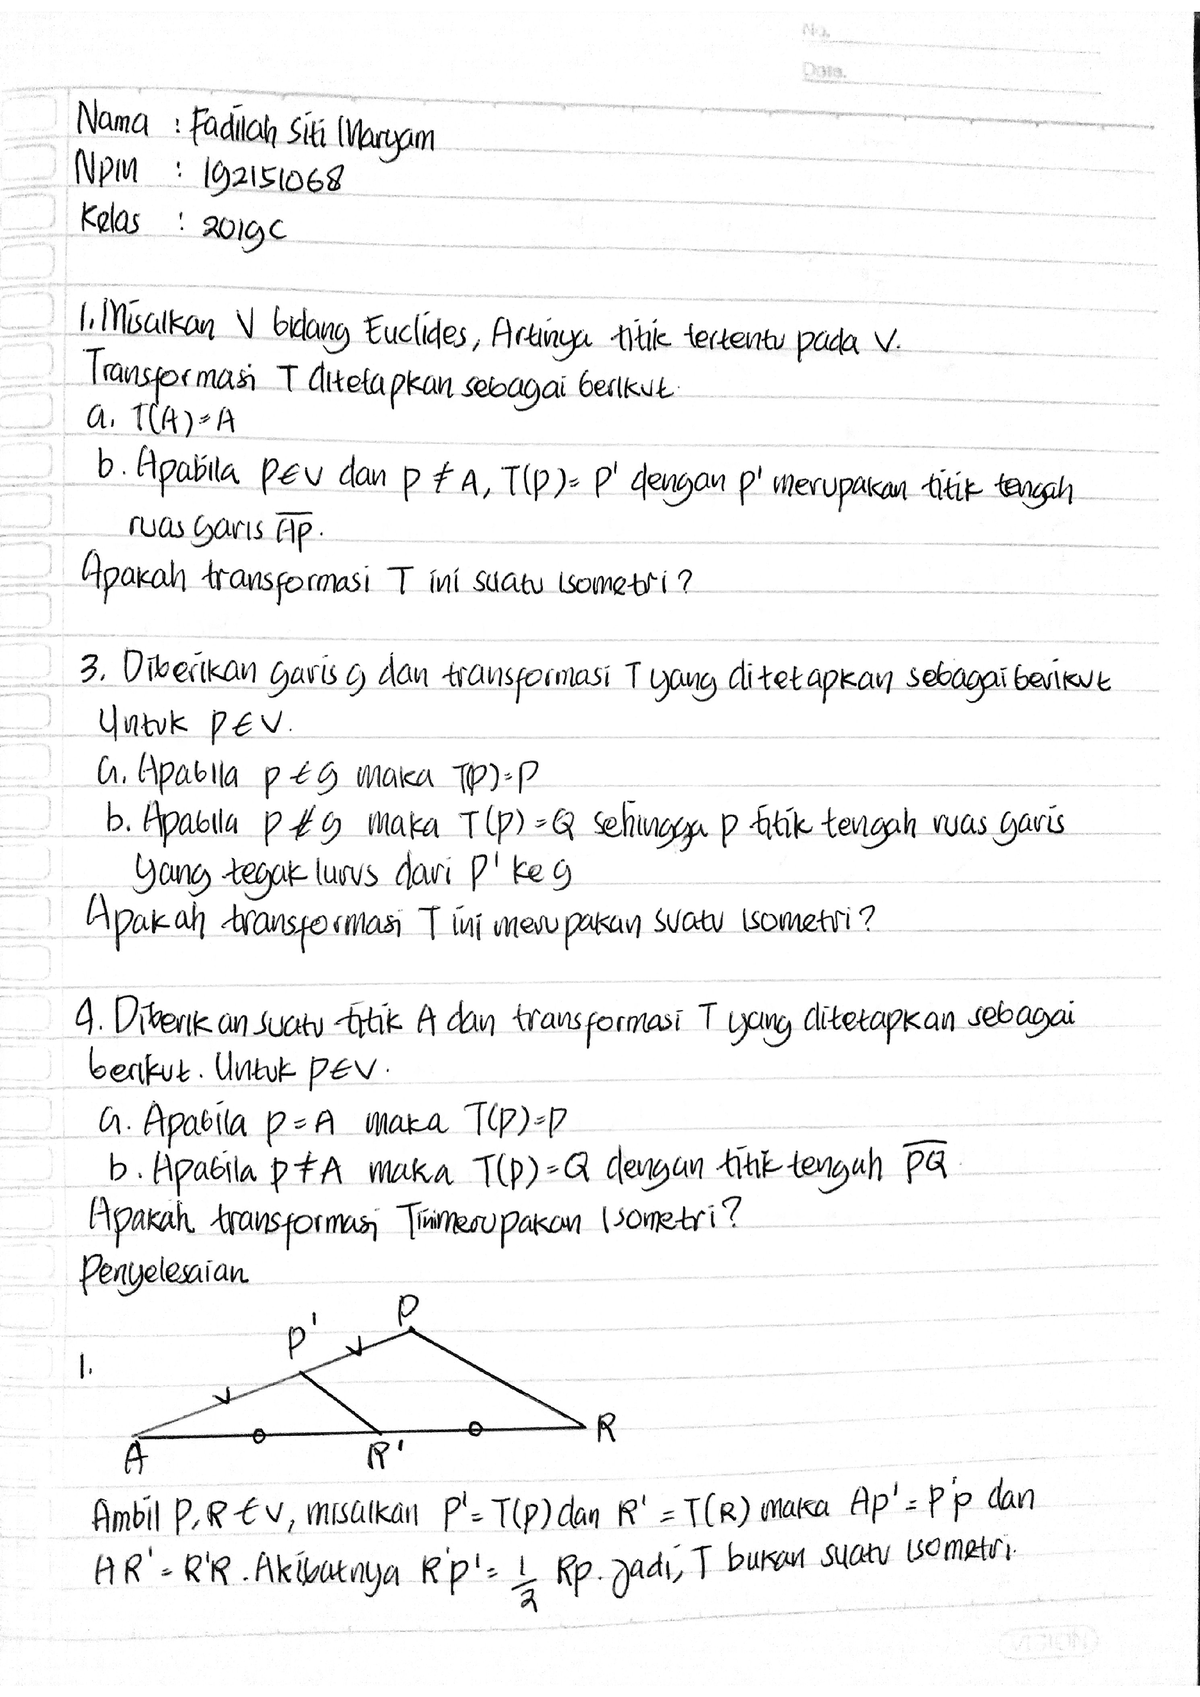 No.
Date.
Nama : Fadilah Siti Maryam
NPM : 192151068
Kelas : 2019C
1. Misalkan V bidang Euclides, Artinya titik tertentu pada V.
Transformasi T ditetapkan sebagai berikut.
a. T(A)=A
b. Apabila P∈V dan P≠A, T(P)= P' dengan P' merupakan titik tengah
ruas garis A̅P̅.
Apakah transformasi T ini suatu isometri?
3. Diberikan garis g dan transformasi T yang ditetapkan sebagai berikut
Untuk P∈V.
a. Apabila P∈g maka T(P)=P
b. Apabila P∉g maka T(P)=Q sehingga P titik tengah ruas garis
yang tegak lurus dari P' ke g
Apakah transformasi T ini merupakan suatu isometri?
4. Diberikan suatu titik A dan transformasi T yang ditetapkan sebagai
berikut. Untuk P∈V.
a. Apabila P=A maka T(P)=P
b. Apabila P≠A maka T(P)=Q dengan titik tengah P̅Q̅
Apakah transformasi T ini merupakan Isometri?
Penyelesaian
P' P
1.
A R' R
Ambil P, R ∈ V, misalkan P'= T(P) dan R' = T(R) maka AP'= P'P dan
AR'= R'R. Akibatnya R'P'= 1/2 RP. Jadi, T bukan suatu isometri.